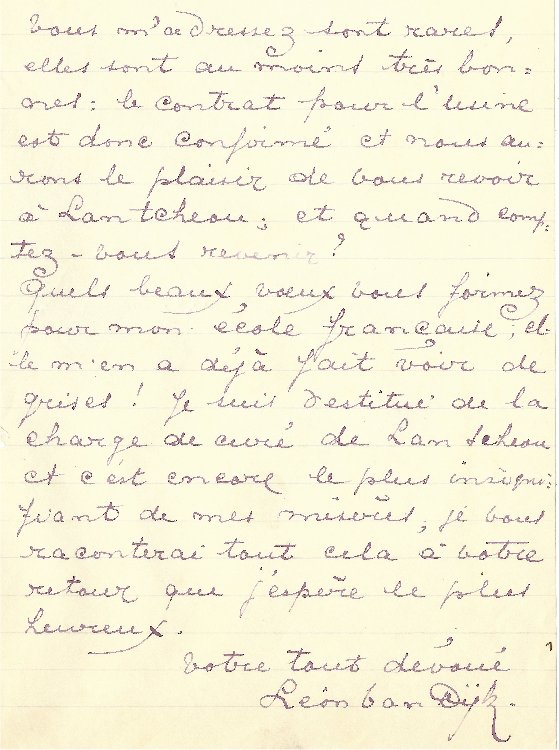 vous m'adressez sont rares,
elles sont au moins très bon=
nes: le contrat pour l'usine
est donc confirmé et nous au=
rons le plaisir de vous revoir
à Lantcheou; et quand comp=
tez-vous revenir?
Quels beaux vœux vous formez
pour mon école française; el-
le m'en a déjà fait voir de
grises! Je suis destitué de la
charge de curé de Lantcheou
et c'est encore le plus insigni=
fiant de mes misères, je vous
raconterai tout cela à votre
retour que j'espère le plus
heureux.
Votre tout dévoué
Léon Van Dijk.